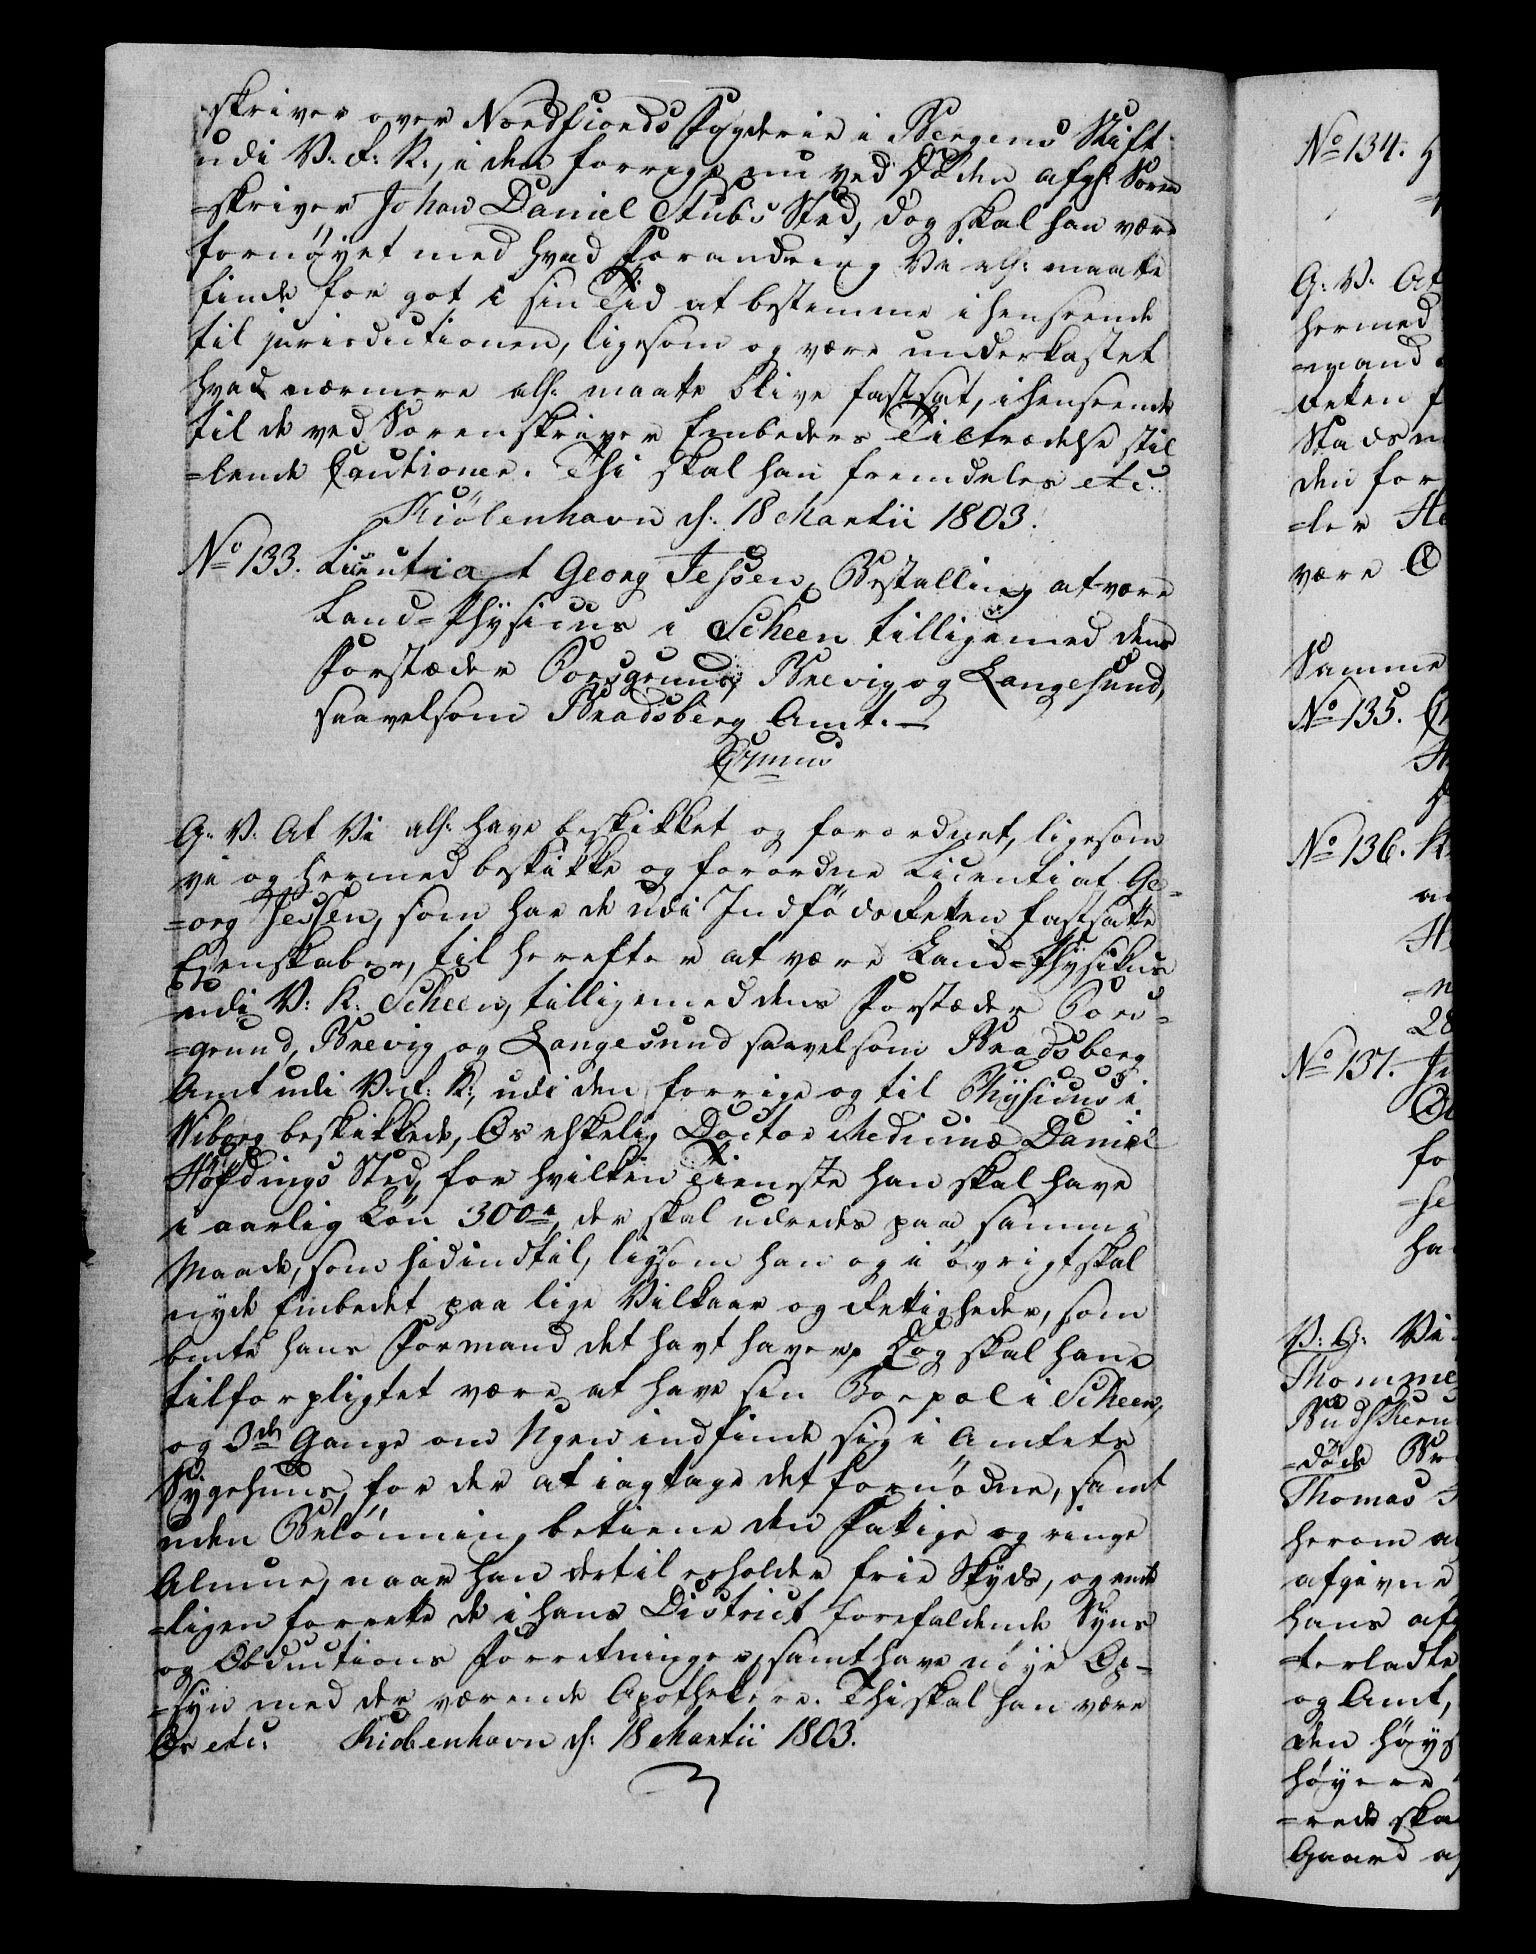 skriver over Nordfiords Fogderie i Bergens Stift
udi V. R. N., i den forrige nu ved Døden afg: Soren
=skriver Johan Daniel Stubs Sted, dog skal han være
fornøyet med hvad Forandring Vi allern: maatte
finde for got i sin Tid at bestemme i henseende
til jurisdictionen, ligesom og være underkastet
hvad nærmere allern: maatte blive fastsat, i henseende
til de ved Sorenskriver Embeders Tiltrædelse stil
=lende Cautioner. Thi skal han fremdeles etc.
Kiöbenhavn d: 18 Martii 1803.
No 133. Licentiat Georg Jessen, Bestalling at være
Land-Physicus i Scheen tilligemed dens
Forstæder Porsgrund, Brevig og Langesund,
saavelsom Bradsberg Amt. —
G. V. At Vi allern: have beskikket og forordnet, ligesom
vi og hermed beskikke og forordne Licentiat Ge-
=org Jessen, som har de udi Indføds Retten fastsatte
Egenskaber, til herefter at være Land-Physikus
udi V. K. Scheen, tilligemed dens Forstæder Pors-
=grund, Brevig og Langesund saavelsom Bradsberg
Amt udi V. R. N., udi den forrige og til Physicus i
Viborg beskikkede, Os elskelig Doctor Medicinæ Daniel
Höfdings Sted, for hvilken Tieneste han skal have
i aarlig Løn 300 rd, der skal udredes paa samme
Maade, som hidindtil, ligesom han og i øvrigt skal
nyde Embedet paa lige Vilkaar og Rettigheder, som
bemte hans Formand det havt haver. Dog skal han
tilforpligtet være at have sin Boepæl i Scheen,
og 3de Gange om Ugen indfinde sig i Amtets
Sygehuus, for der at iagtage det fornødne, samt
uden Belønning betiene den Fattige og ringe
Almue, naar han dertil erholder frie Skyds, og endt
=ligen forrette de i hans District forefaldende Syns
og Obductions Forretninger, samt have nøye Op-
=syn med der værende Apothekere. Thi skal han være
Os etc. Kiöbenhavn d: 18 Martii 1803.
No 134.
G. V. At
hermed
=mand
Retten f
Stads
den for
=ler
være
Samme
No 135.
No 136.
28
No 137.
fo
=se
ha
V. G. Vi
Thomme
Budskeru
=døde
Thomas
herom a
afgivne
hans af
=terladte
og Amt,
den höys
höyere
=rede ska
Gaard a